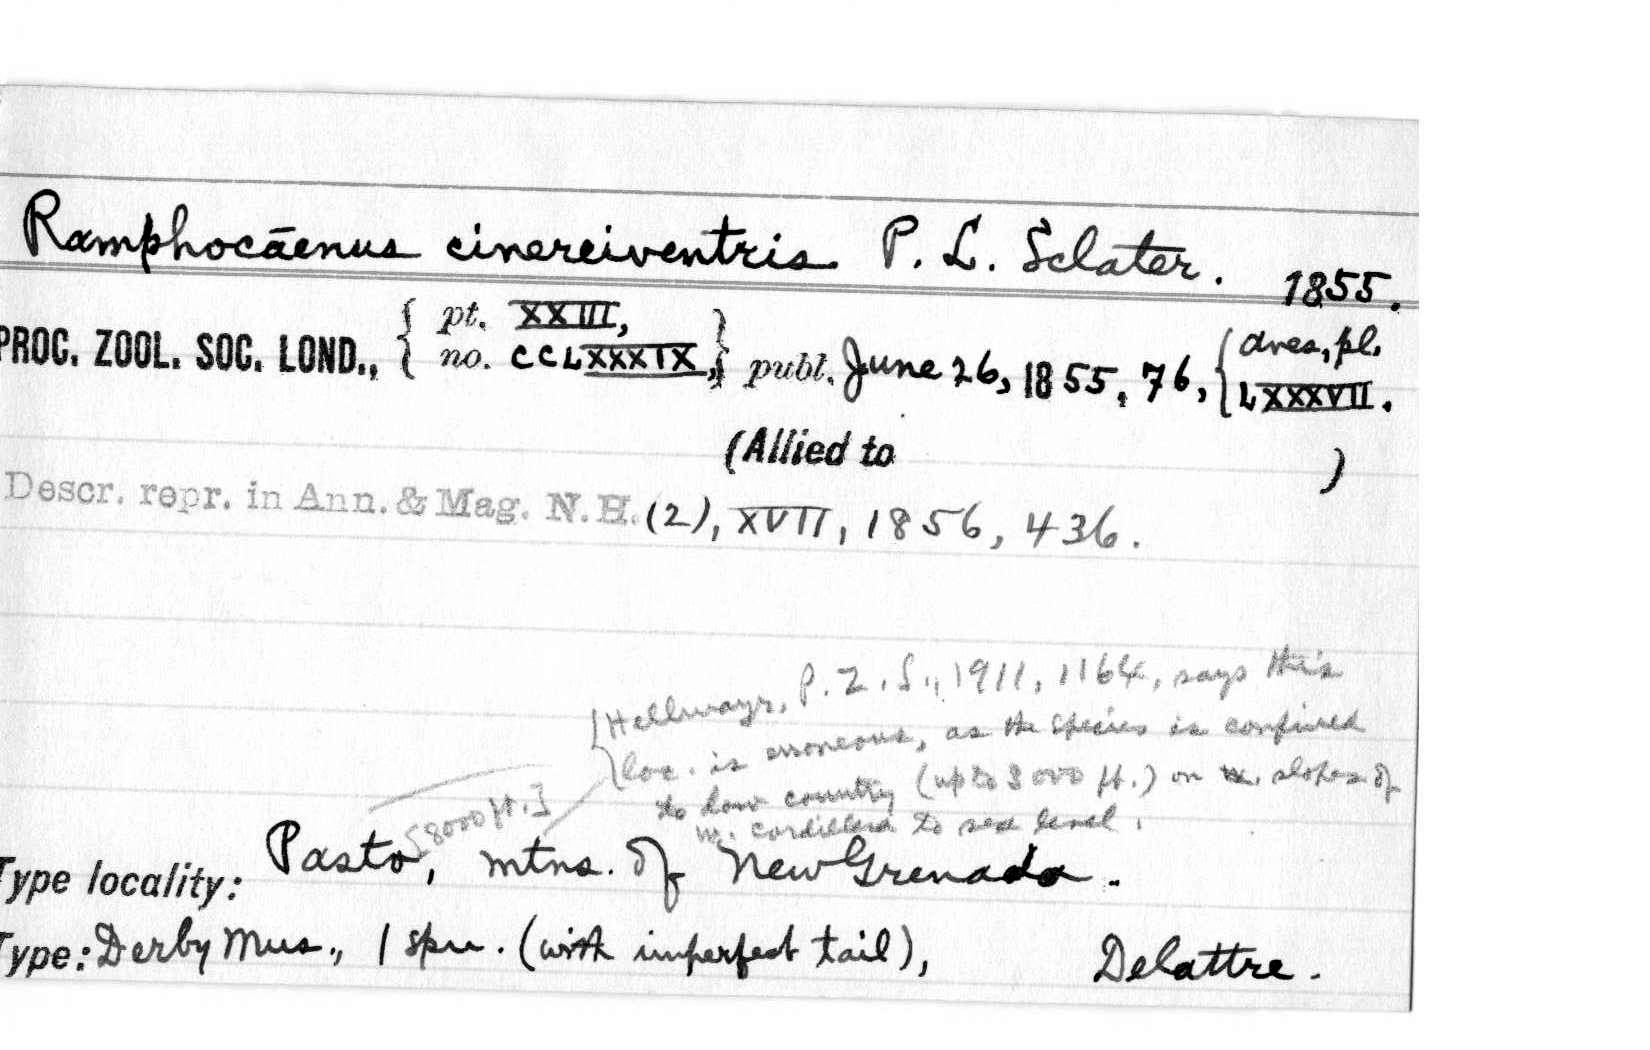 Ramphocāenus cinereiventris P. L. Sclater. 1855.
PROC. ZOOL. SOC. LOND., { pt. XXIII, no. CCLXXXIX, } publ. June 26, 1855, 76, { Aves, pl. LXXXVII.
(Allied to )
Descr. repr. in Ann. & Mag. N. H. (2), XVII, 1856, 436.
{Hellmayr, P. Z. S., 1911, 1164, says this
loc. is erroneous, as the species is confined
to low country (up to 3000 ft.) on w. slopes of
w. cordillera to sea level.
[8000 ft.]
Type locality: Pasto, mtns. of New Grenada.
Type: Derby Mus., 1 spn. (with imperfect tail), Delattre.